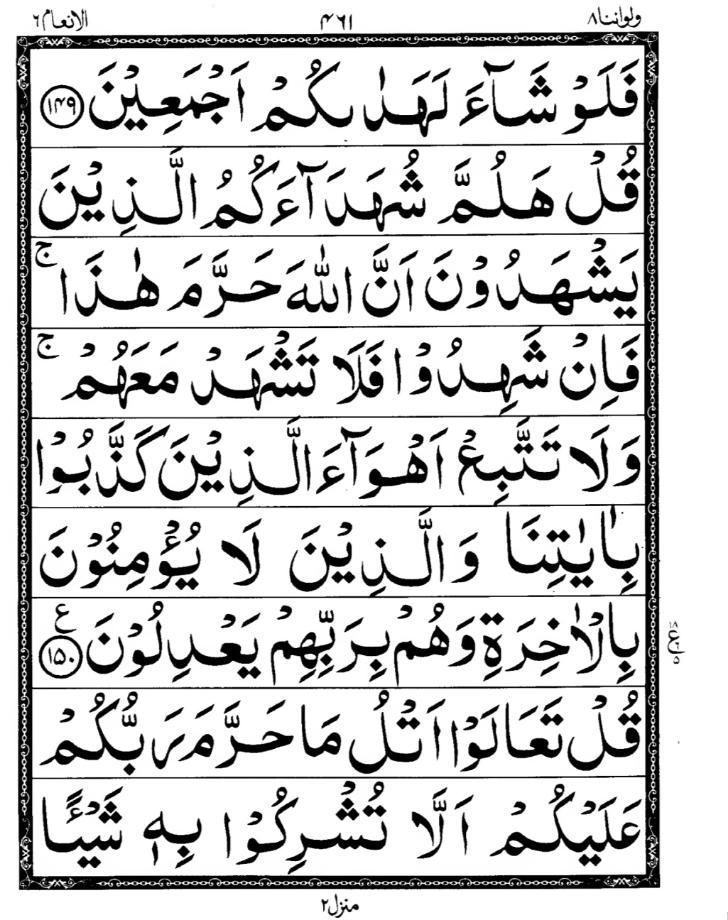 ولواننا٨ ۴۶۱ الانعام٦
فَلَوْ شَآءَ لَهَدٰىكُمْ اَجْمَعِيْنَ ﴿۱۴۹﴾
قُلْ هَلُمَّ شُهَدَآءَكُمُ الَّذِيْنَ
يَشْهَدُوْنَ اَنَّ اللّٰهَ حَرَّمَ هٰذَا ۚ
فَاِنْ شَهِدُوْا فَلَا تَشْهَدْ مَعَهُمْ ۚ
وَلَا تَتَّبِعْ اَهْوَآءَ الَّذِيْنَ كَذَّبُوْا
بِاٰيٰتِنَا وَالَّذِيْنَ لَا يُؤْمِنُوْنَ
بِالْاٰخِرَةِ وَهُمْ بِرَبِّهِمْ يَعْدِلُوْنَ ﴿۱۵۰﴾ ع
قُلْ تَعَالَوْا اَتْلُ مَا حَرَّمَ رَبُّكُمْ
عَلَيْكُمْ اَلَّا تُشْرِكُوْا بِهٖ شَيْـًٔا
منزل۲